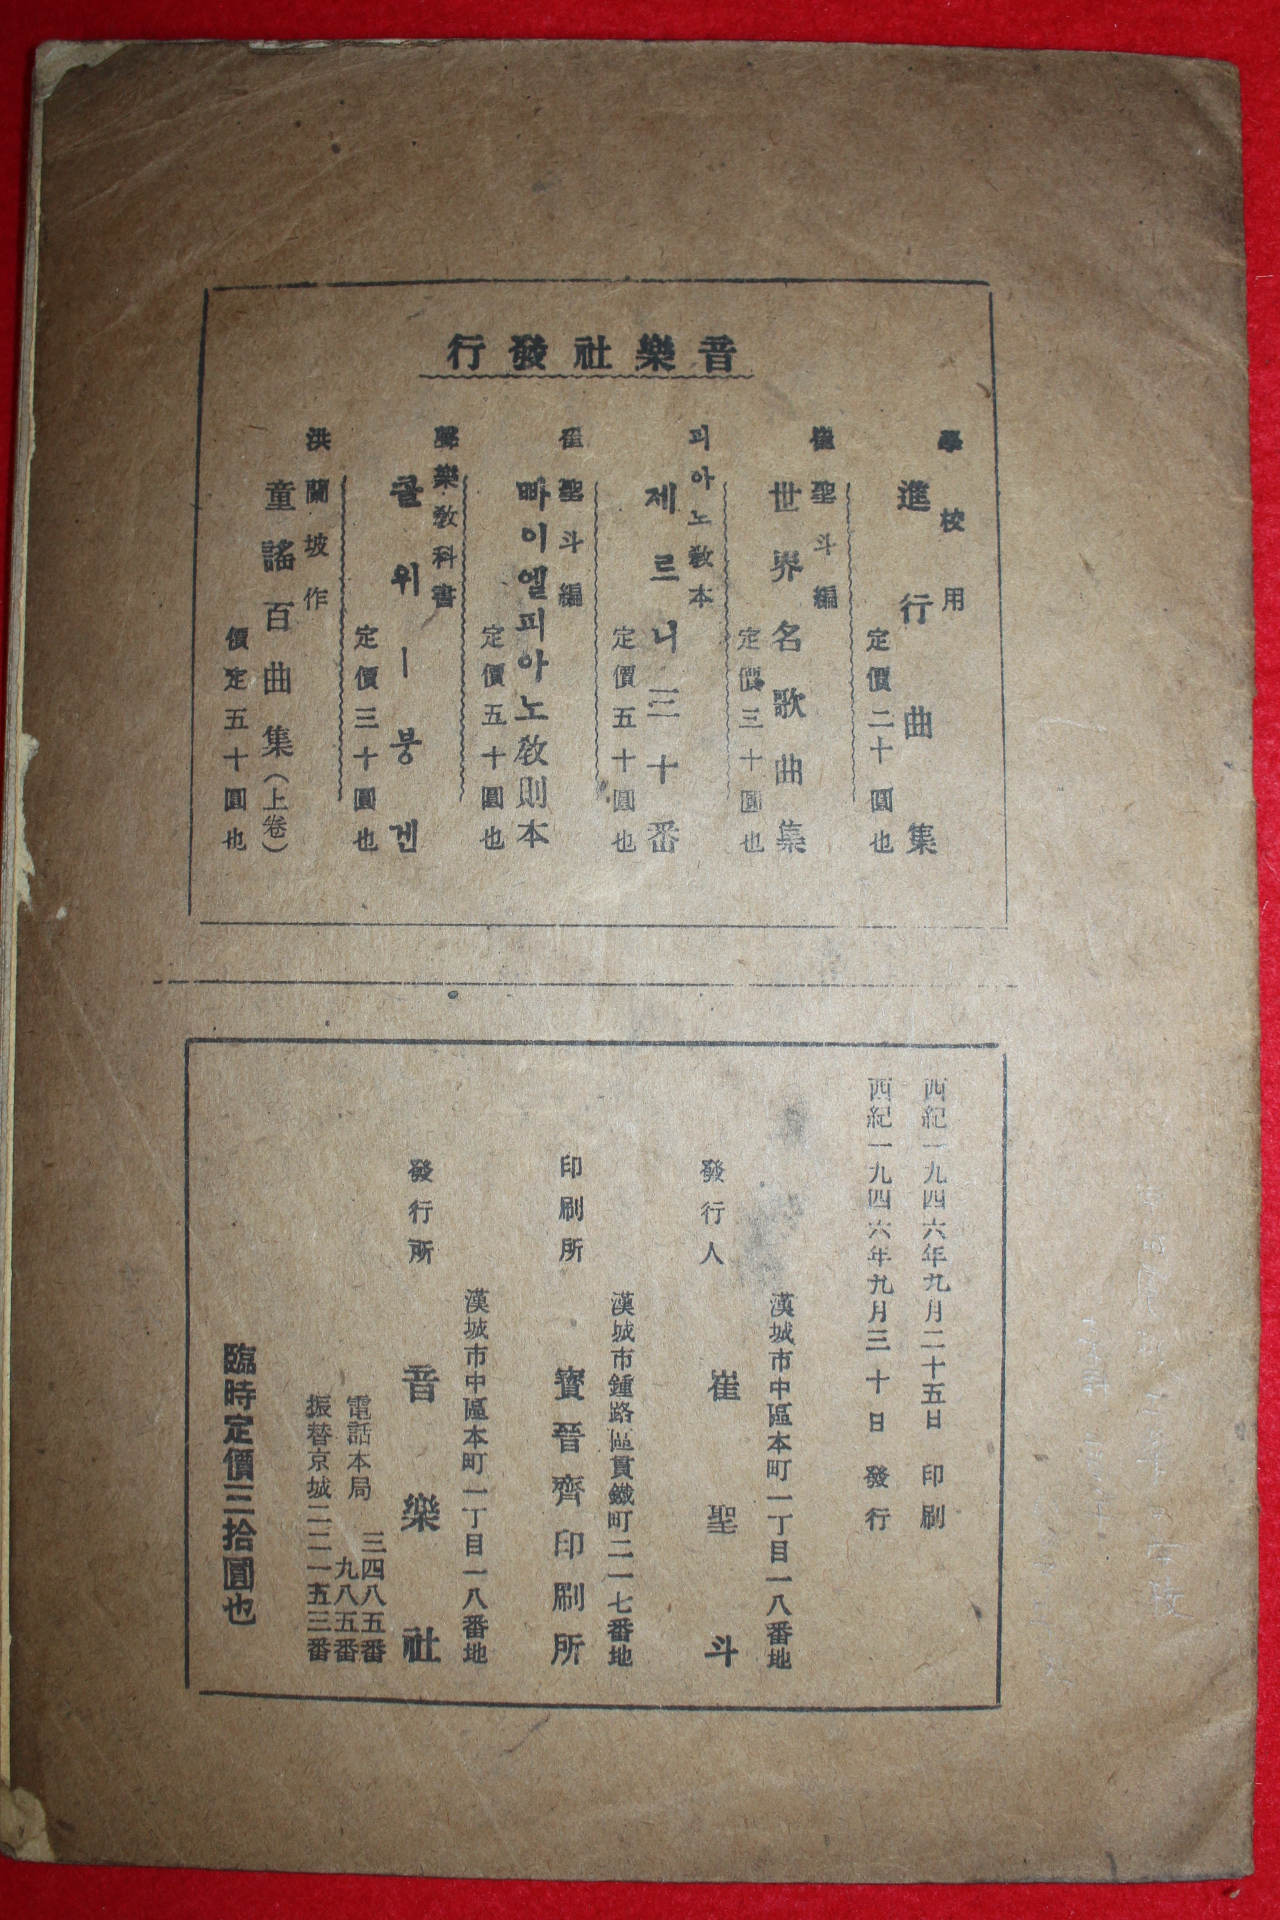 音樂社發行
學校用
進行曲集
定價二十圓也
崔聖斗編
世界名歌曲集
定價三十圓也
피아노敎本
제르니三十番
定價五十圓也
崔聖斗編
빠이엘피아노敎則本
定價五十圓也
聲樂敎科書
콜위ㅣ붕겐
定價三十圓也
洪蘭坡作
童謠百曲集(上卷)
價定五十圓也
西紀一九四六年九月二十五日 印刷
西紀一九四六年九月三十日 發行
漢城市中區本町一丁目一八番地
發行人 崔聖斗
漢城市鍾路區貫鐵町二一七番地
印刷所 寶晉齊印刷所
漢城市中區本町一丁目一八番地
發行所 音樂社
電話本局 三四八五番
九八五番
振替京城二二一五三番
臨時定價三拾圓也